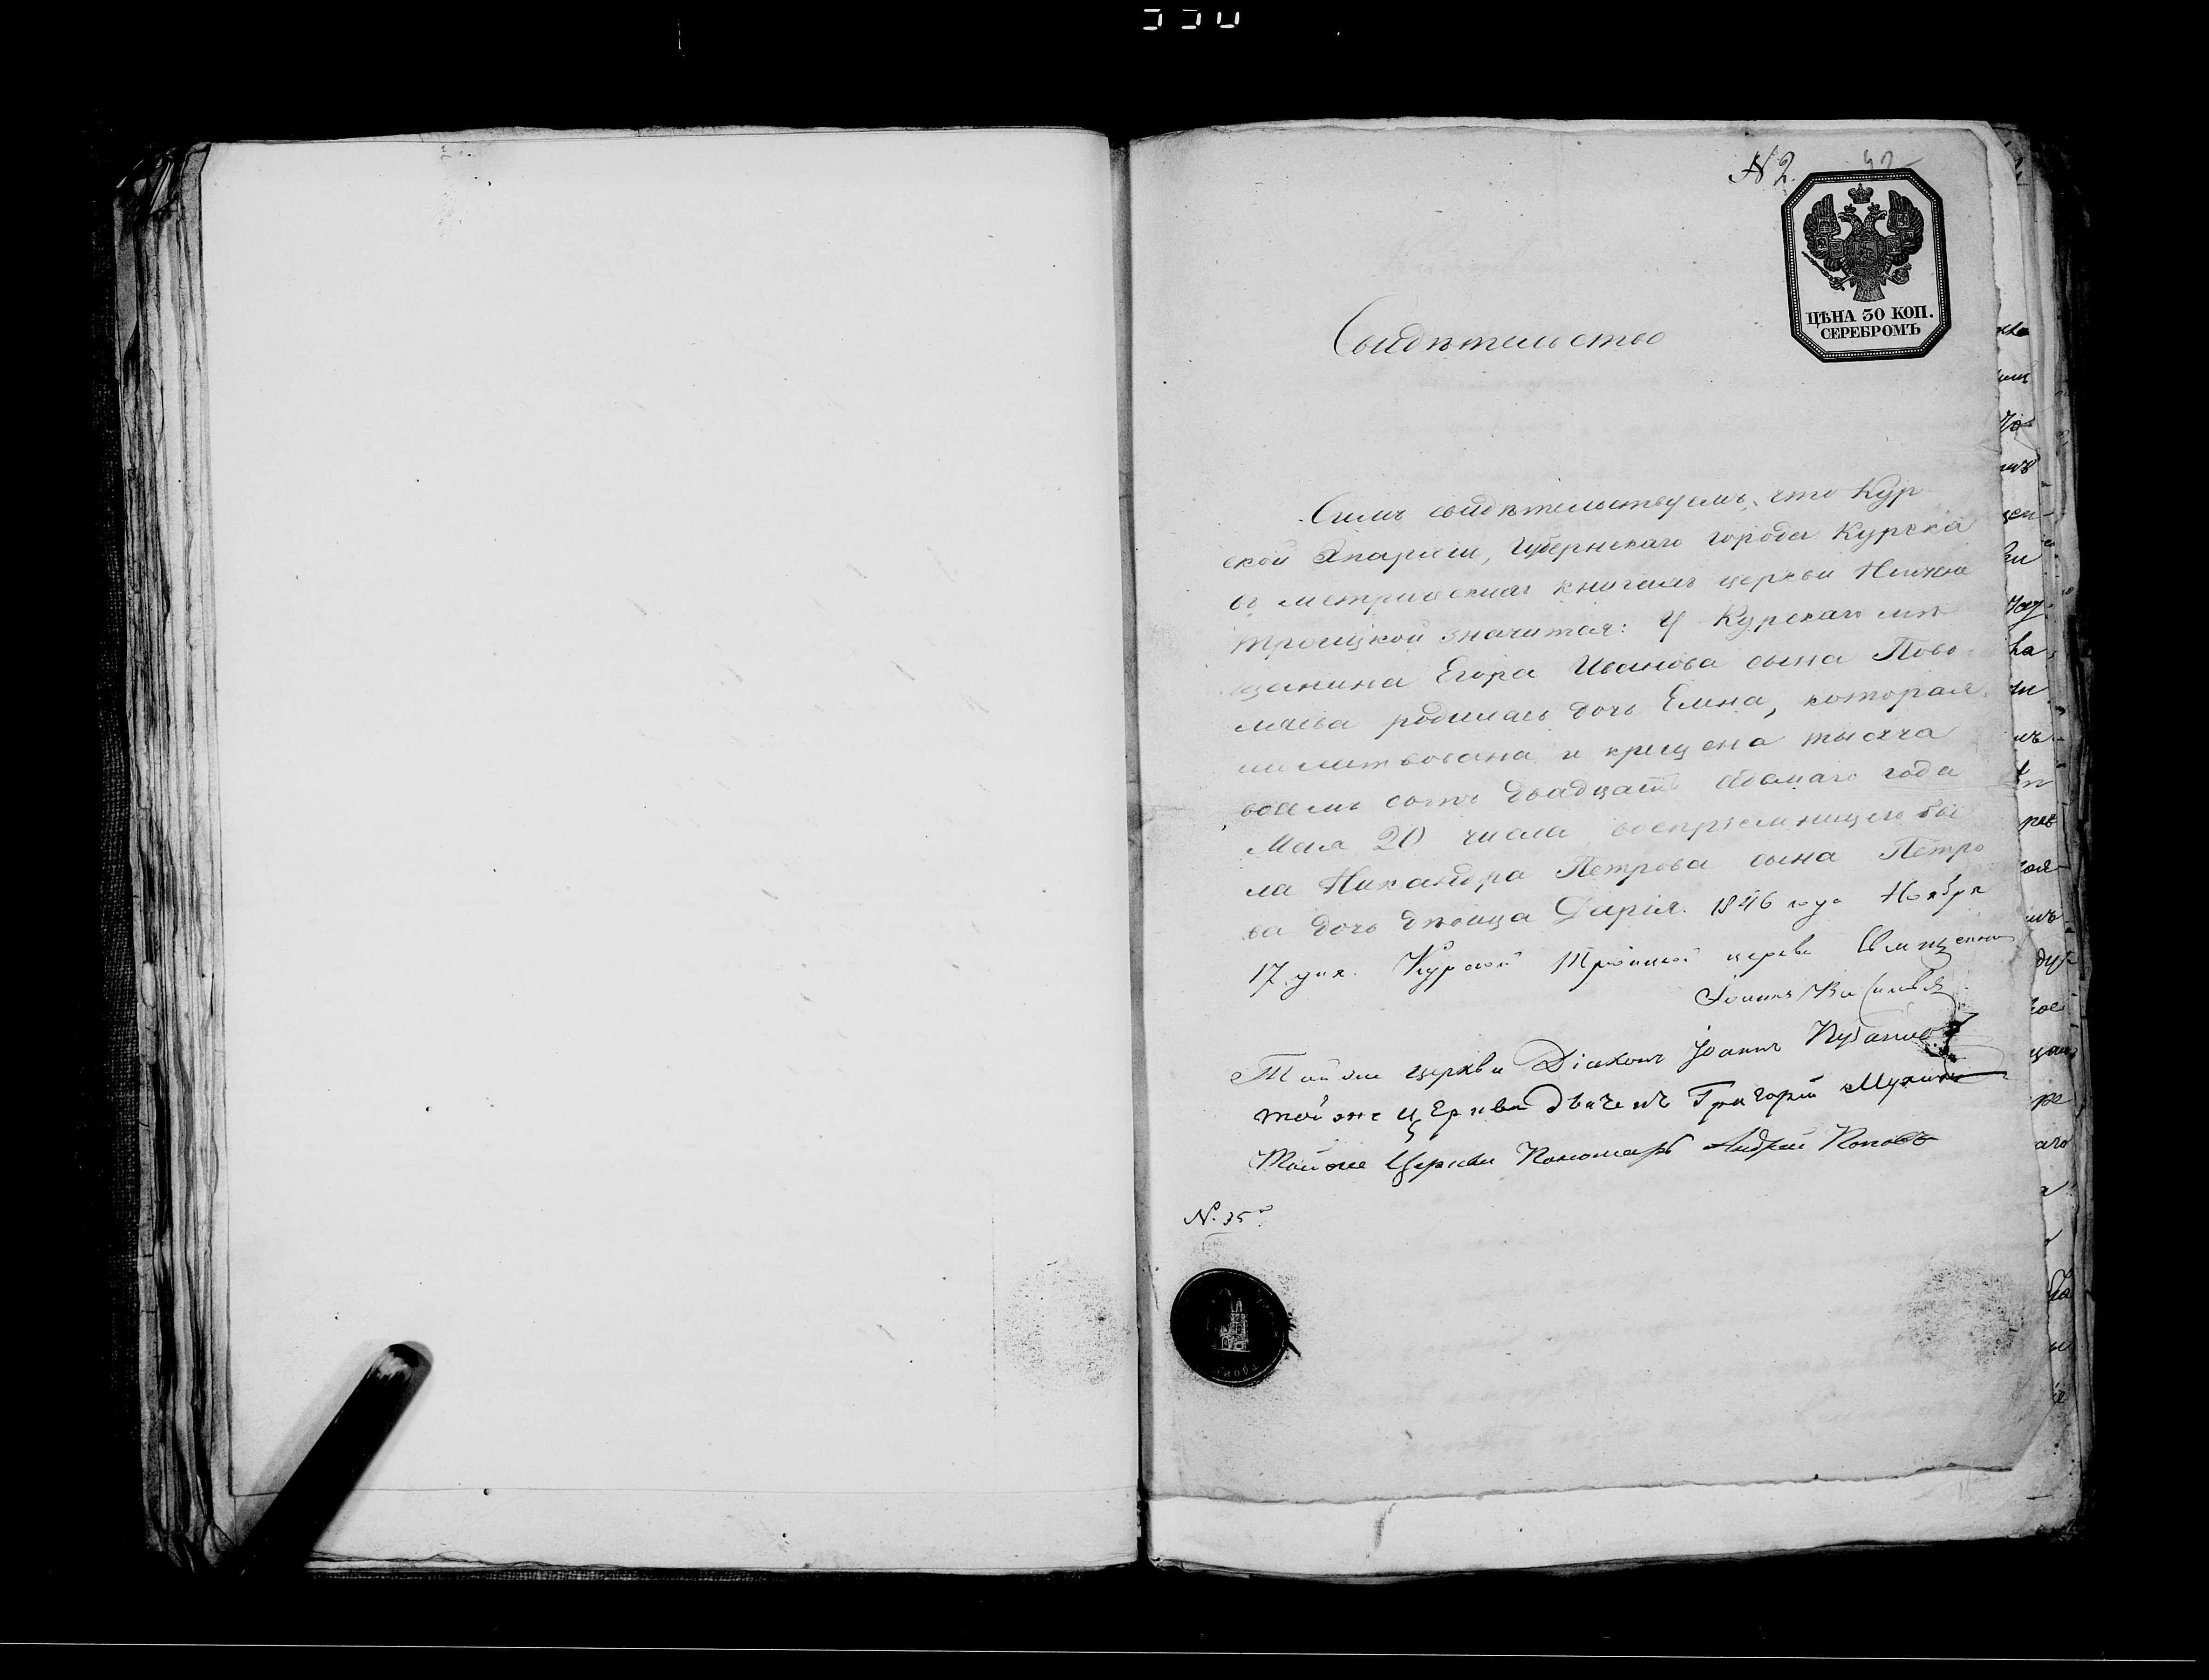 N 2.
42
ЦѢНА 30 КОП.
СЕРЕБРОМЪ
Свидѣтельство
Симъ свидѣтельствуемъ, что Кур
ской Эпархіи, Губернскаго города Курска
въ метрическихъ книгахъ церкви Нижне
троицкой значится: У Курскаго мѣ
щанина Егора Иванова сына Пово
ляева родилась дочь Елена, которая
молитвована и крещена тысяча
восемь сотъ двадцать седьмаго года
Мая 20 числа воспріемницею бы
ла Никандра Петрова сына Петро
ва дочь дѣвица Дарія. 1846 года Ноября
17 дня. Курской Троицкой церкви Священникъ
Іоаннъ
Той же церкви Діаконъ Іоаннъ
той же церкви дьячекъ Григорій
Той же Церкви Пономарь Андрей Поповъ
N. 35